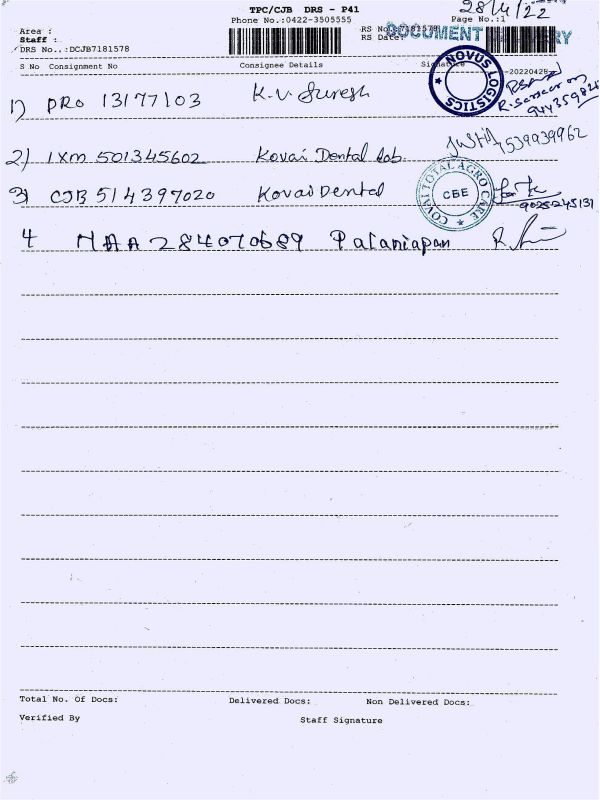 TPC/CJB DRS - P41
28/4/22
Phone No.:0422-3505555
Page No.:1
Area :
Staff :
DRS No.:DCJB7181578
RS No.:7181578
RS Date:
DOCUMENT
S No Consignment No
Consignee Details
Signature
-20220428
NOVUS LOGISTICS
1) PRO 13177103 K.V. Suresh
2) IXM 501345602 Kovai Dental Lab.
7539939962
3) CJB 514397020 Kovai Dental
COVAI TOTAL AGRO CARE
CBE
9025245131
4 MAA 284070689 Palaniapan
Total No. Of Docs:
Delivered Docs:
Non Delivered Docs:
Verified By
Staff Signature